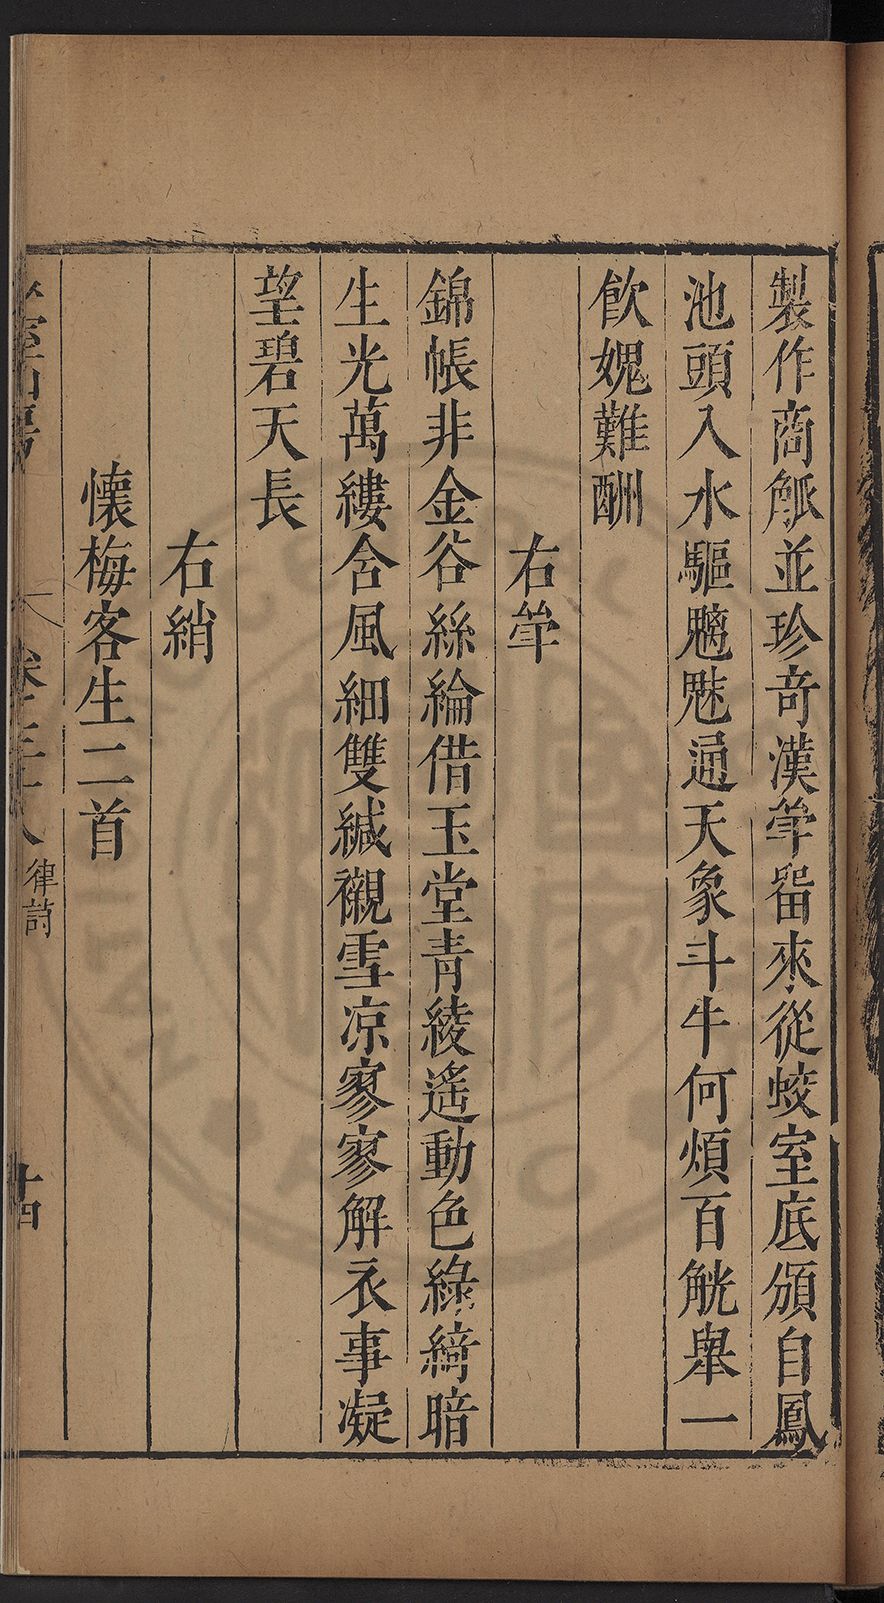 製作商觚並珍奇漢斝畱來從蛟室底頒自鳳
池頭入水驅魑魅通天象斗牛何煩百觥舉一
飲媿難酬
右斝
錦帳非金谷絲綸借玉堂青綾遙動色綠綺暗
生光萬縷含風細雙緘襯雪凉寥寥解衣事凝
望碧天長
右綃
懷梅客生二首
律詩
十四